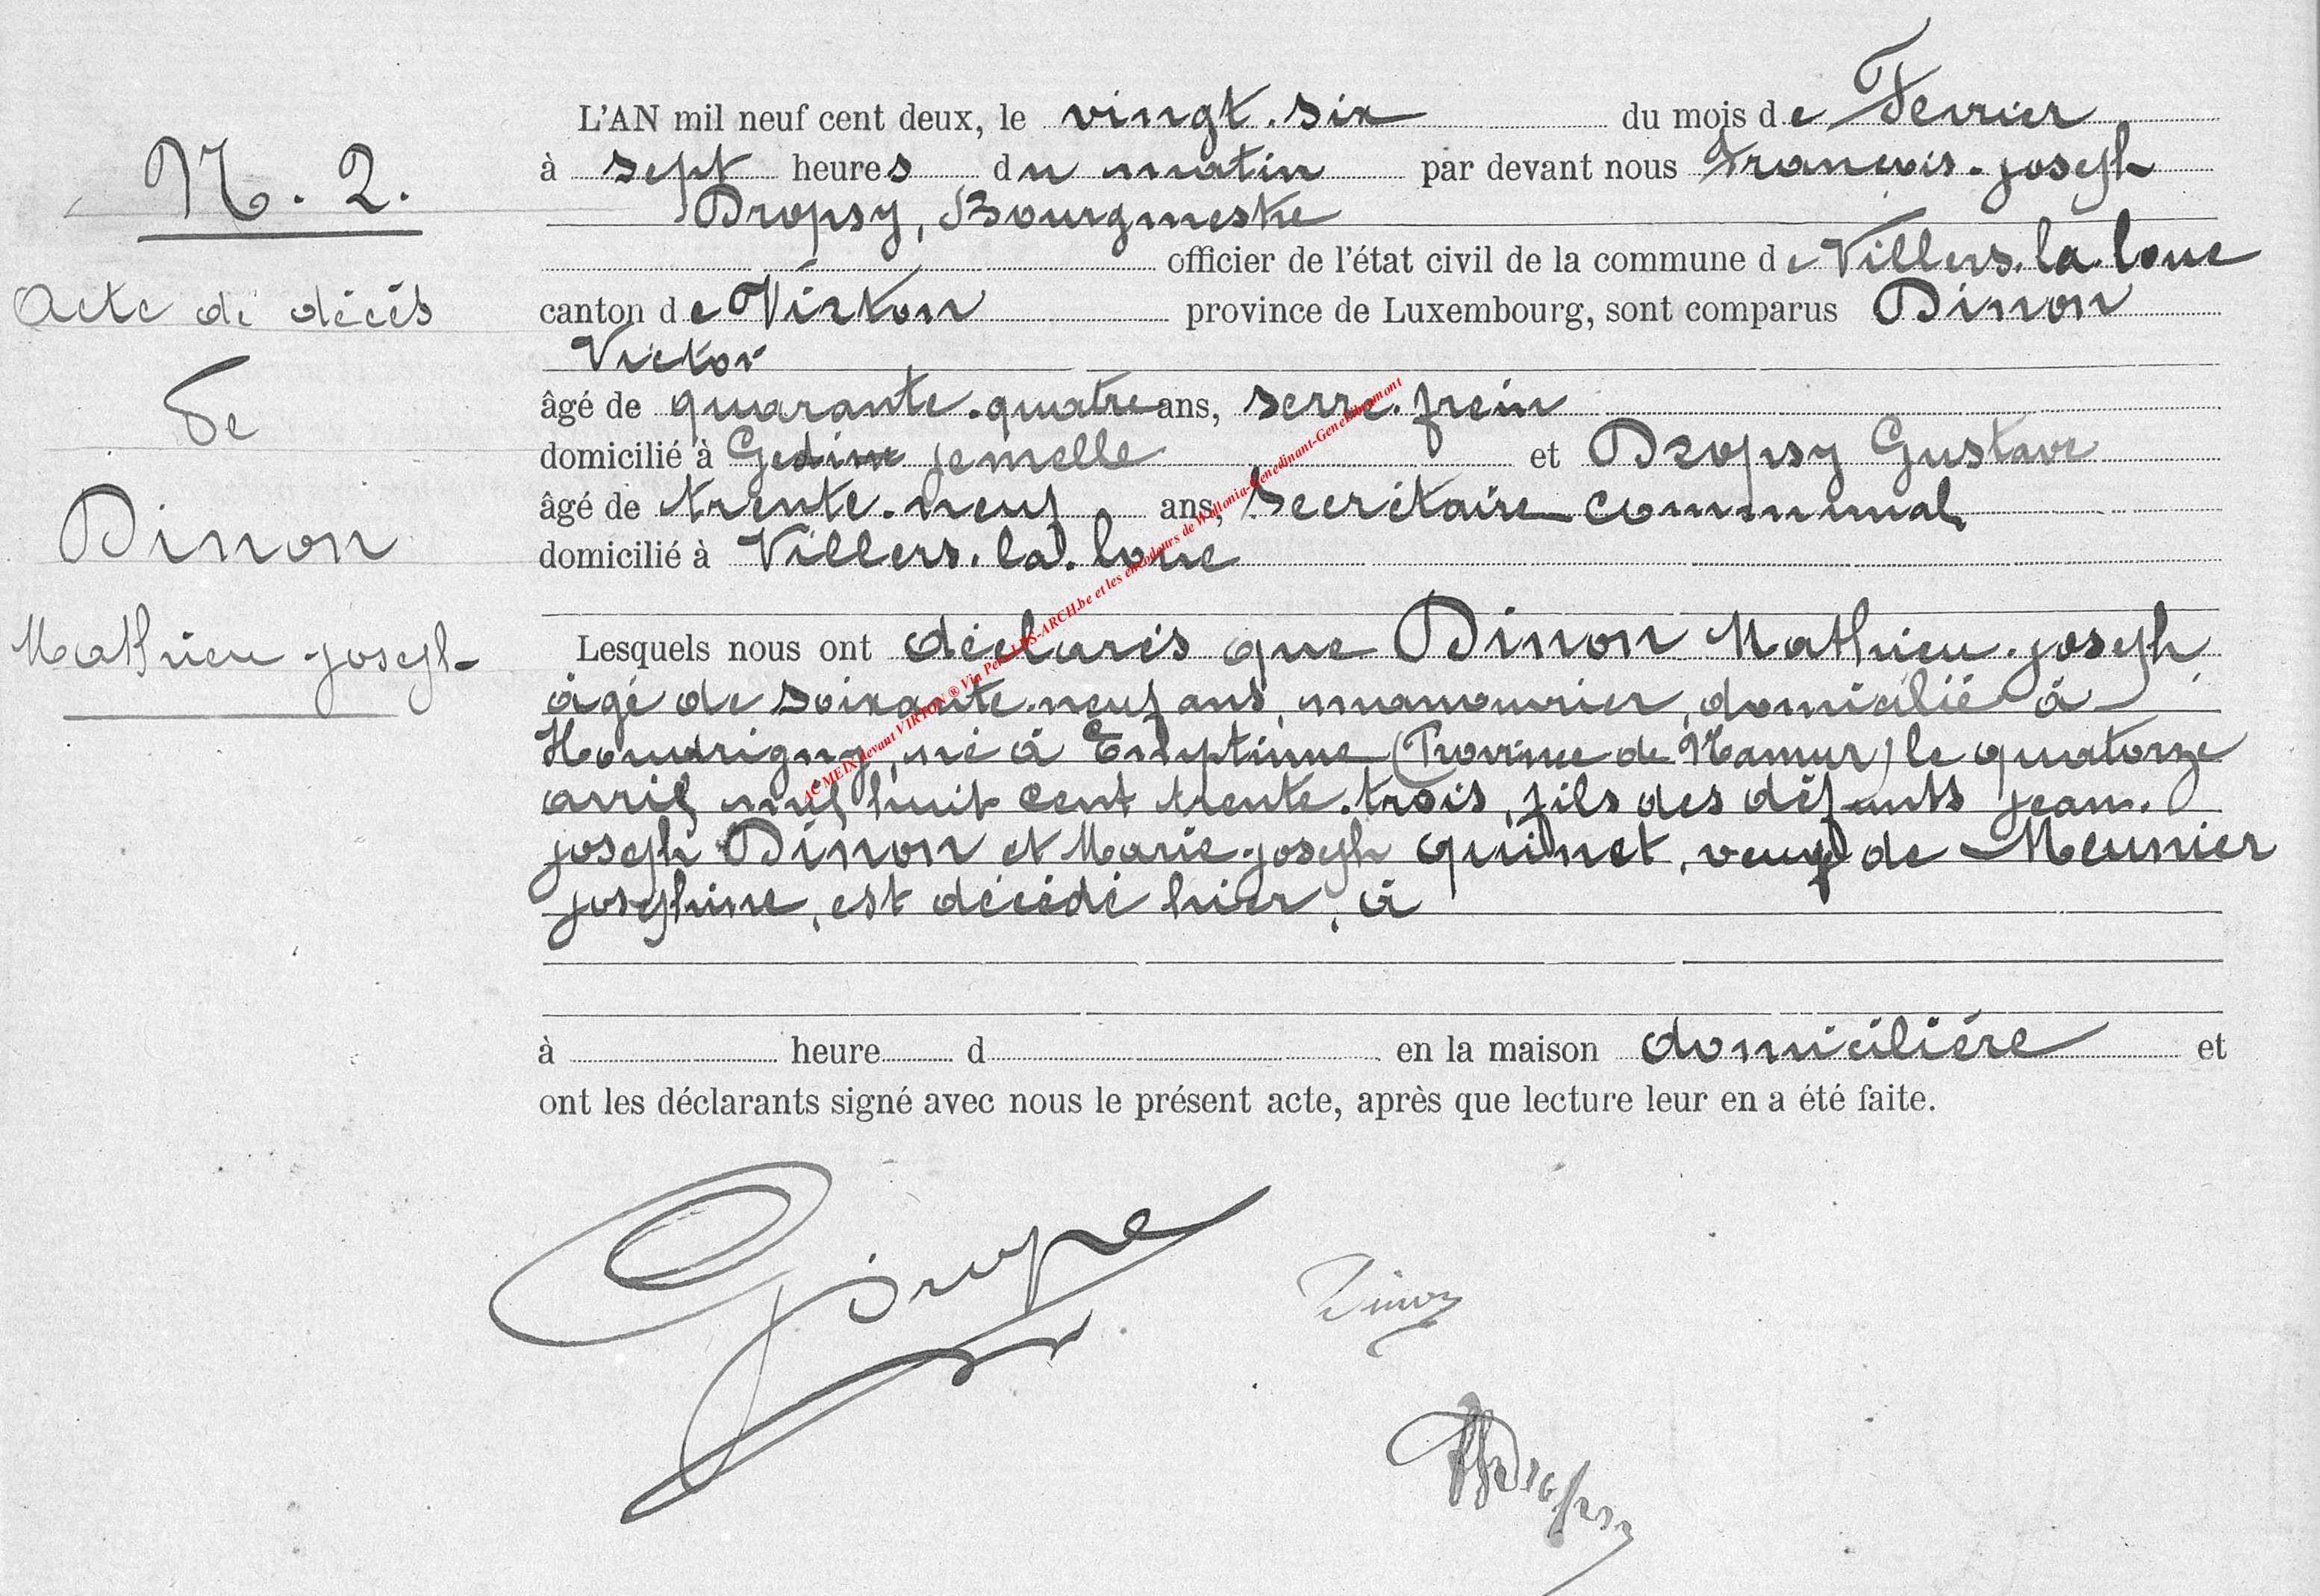 N. 2.
Acte de décès
De
Dinon
Mathieu-joseph
L'AN mil neuf cent deux, le vingt-six du mois de Fevrier
à sept heures du matin par devant nous Francois-joseph
Dropsy, Bourgmestre
officier de l'état civil de la commune de Villers-la-loue
canton de Virton province de Luxembourg, sont comparus Dinon
Victor
âgé de quarante-quatre ans, serre-frein
domicilié à Gedinne jemelle et Dropsy Gustave
âgé de trente-neuf ans, Secrétaire communal
domicilié à Villers-la-loue
Lesquels nous ont déclarés que Dinon Mathieu-joseph,
âgé de soixante-neuf ans, manouvrier, domicilié à
Houdrigny, né à Emptinne (Province de Namur) le quatorze
avril mil huit cent trente-trois, fils des défunts jean-
joseph Dinon et Marie-joseph quinet, veuf de Meunier
josephine, est décédé hier, à
à heure d en la maison domicilière et
ont les déclarants signé avec nous le présent acte, après que lecture leur en a été faite.
Dinon
Dropsy
AC MEIX devant VIRTON ® Via Pelt LDS-ARCH.be et les encodeurs de Wallonia-Genedinant-GeneLibramont